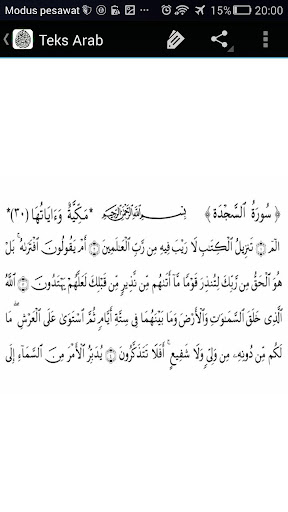 Modus pesawat 15% 20:00
Teks Arab
﴿ سُورَةُ ٱلسَّجْدَةِ ﴾ بِسْمِ ٱللَّهِ ٱلرَّحْمَٰنِ ٱلرَّحِيمِ *مَكِّيَّةٌ وَءَايَاتُهَا (٣٠)*
الٓمٓ ۝ تَنزِيلُ ٱلْكِتَٰبِ لَا رَيْبَ فِيهِ مِن رَّبِّ ٱلْعَٰلَمِينَ ۝ أَمْ يَقُولُونَ ٱفْتَرَىٰهُ ۚ بَلْ
هُوَ ٱلْحَقُّ مِن رَّبِّكَ لِتُنذِرَ قَوْمًا مَّآ أَتَىٰهُم مِّن نَّذِيرٍ مِّن قَبْلِكَ لَعَلَّهُمْ يَهْتَدُونَ ۝ ٱللَّهُ
ٱلَّذِى خَلَقَ ٱلسَّمَٰوَٰتِ وَٱلْأَرْضَ وَمَا بَيْنَهُمَا فِى سِتَّةِ أَيَّامٍ ثُمَّ ٱسْتَوَىٰ عَلَى ٱلْعَرْشِ ۖ مَا
لَكُم مِّن دُونِهِۦ مِن وَلِىٍّ وَلَا شَفِيعٍ ۚ أَفَلَا تَتَذَكَّرُونَ ۝ يُدَبِّرُ ٱلْأَمْرَ مِنَ ٱلسَّمَآءِ إِلَى